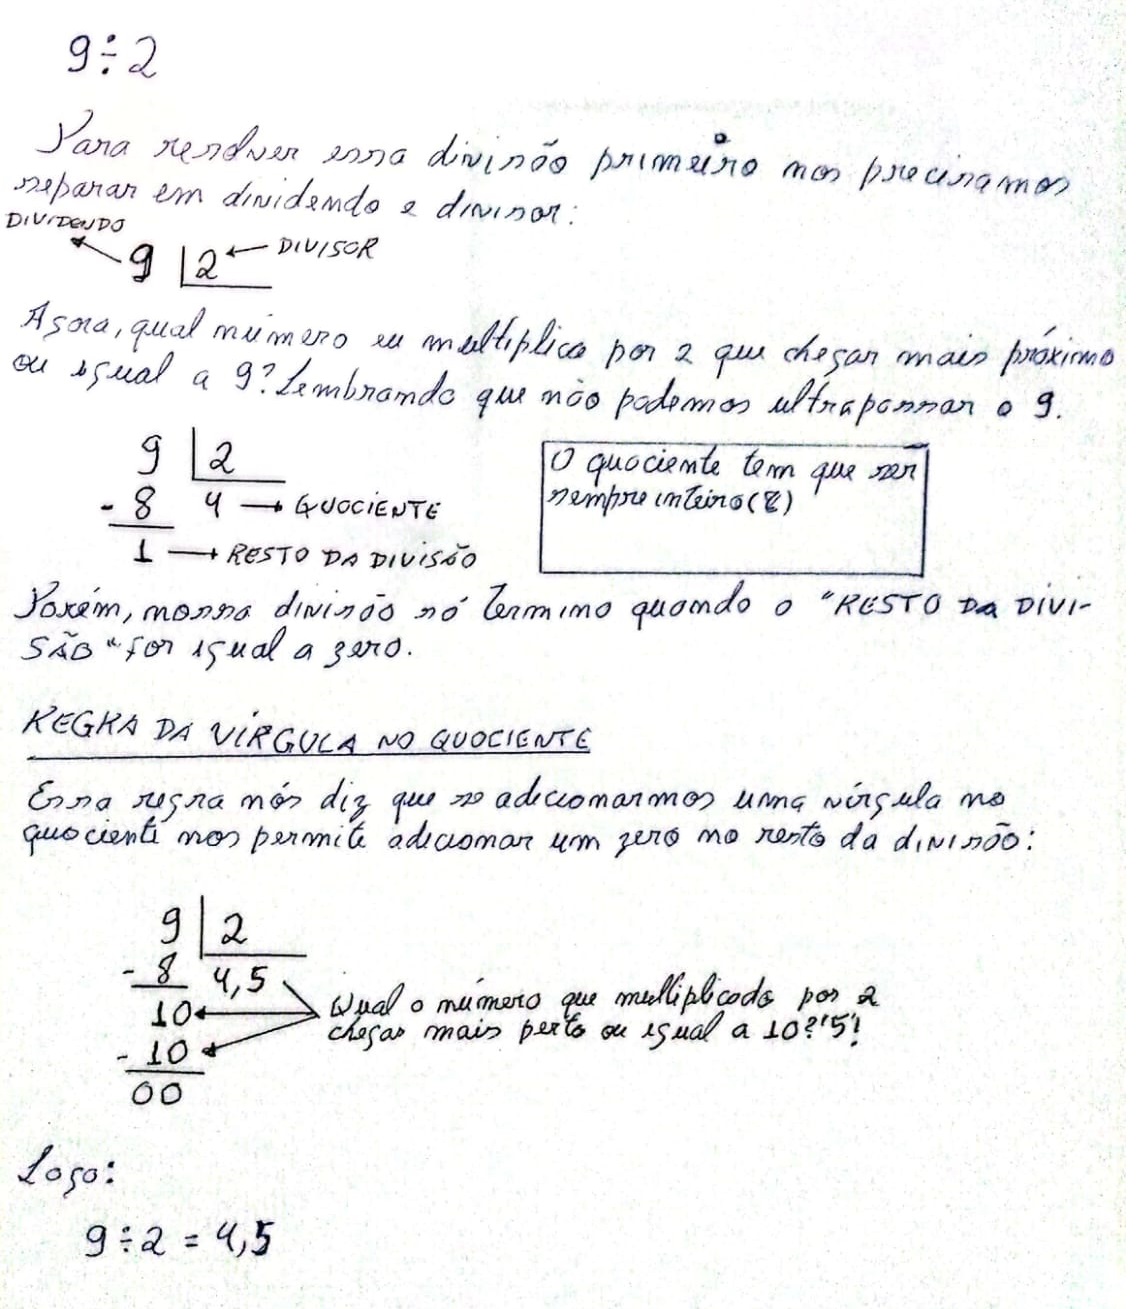 9÷2
Para resolver essa divisão primeiro nos precisamos
separar em dividendo e divisor:
DIVIDENDO
9 2 ← DIVISOR
Agora, qual número eu multiplico por 2 que chegar mais próximo
ou igual a 9? Lembrando que não podemos ultrapassar o 9.
9 2
- 8 4 → QUOCIENTE
1 → RESTO DA DIVISÃO
O quociente tem que ser
sempre inteiro (Z)
Porém, nossa divisão só termino quando o "RESTO DA DIVI-
SÃO" for igual a zero.
REGRA DA VÍRGULA NO QUOCIENTE
Essa regra nós diz que se adicionarmos uma vírgula no
quociente nos permite adicionar um zero no resto da divisão:
9 2
- 8 4,5
10
- 10
00
Qual o número que multiplicado por 2
chegar mais perto ou igual a 10? '5'!
Logo:
9÷2 = 4,5